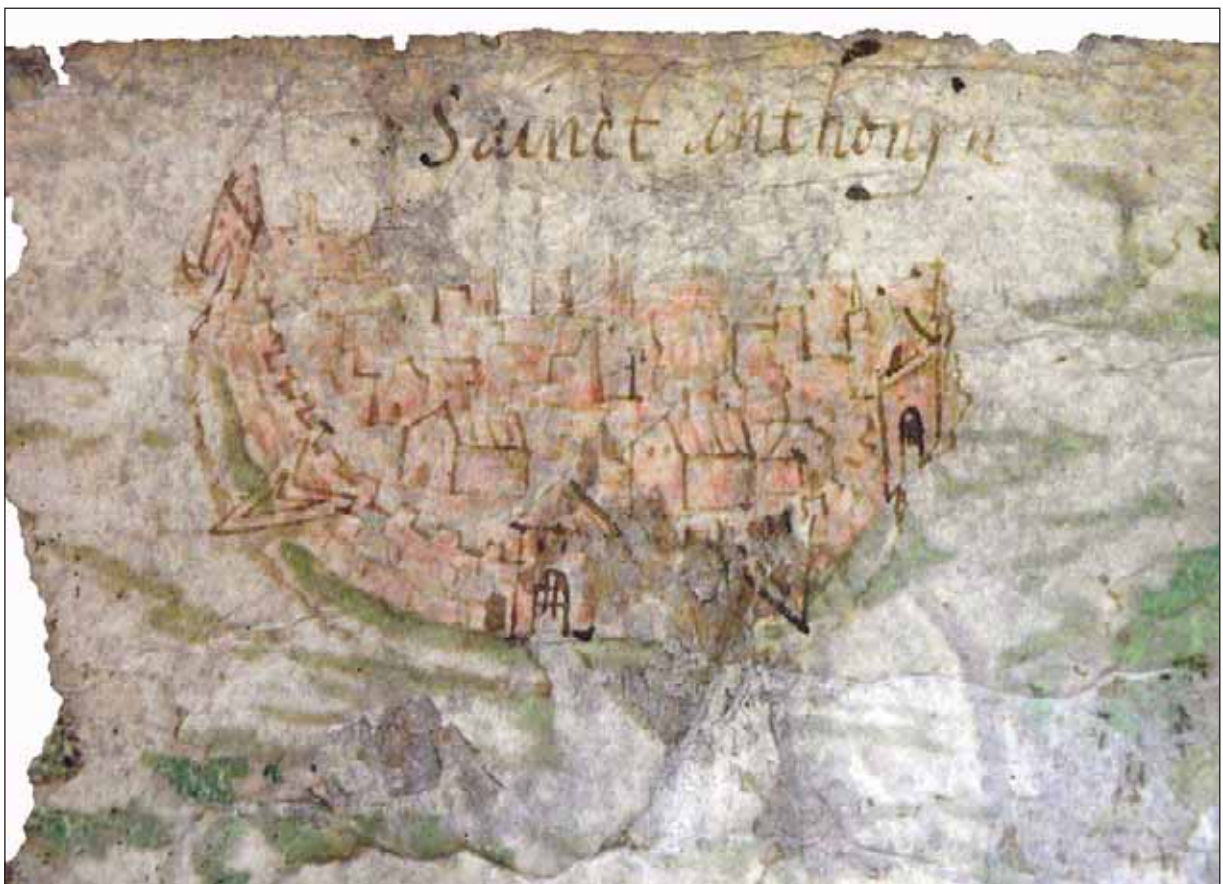 Sainct anthonyn